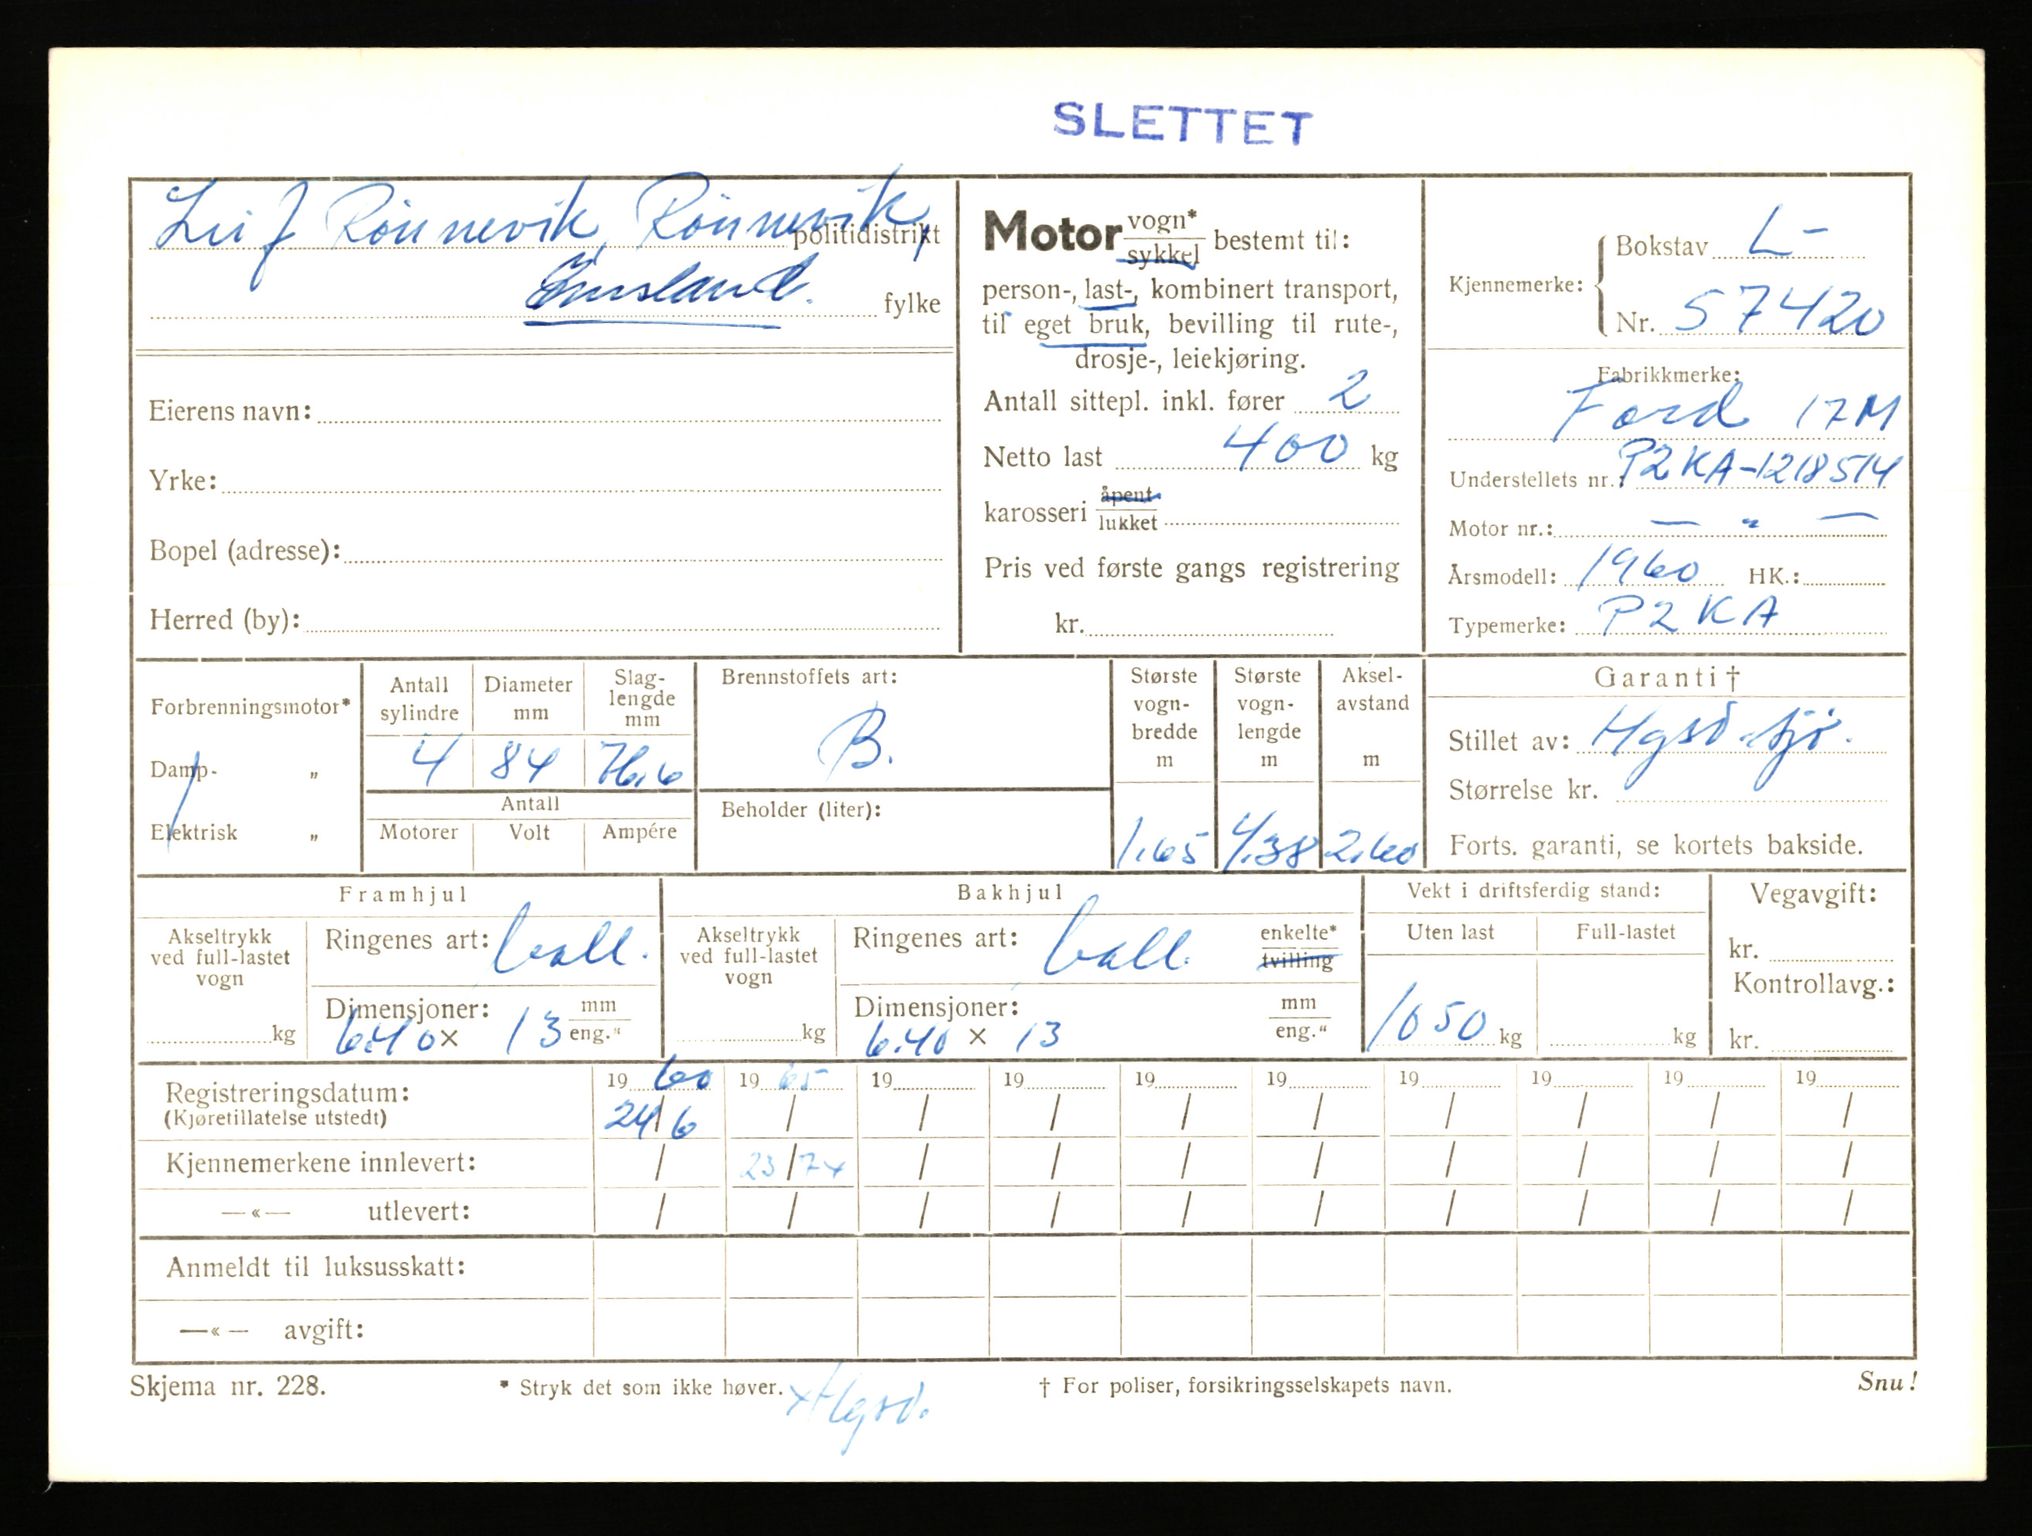 SLETTET
Leif Rönnevik, Rönnevik,
politidistrikt
fylke
Eierens navn:
Yrke:
Bopel (adresse):
Herred (by):
Motor vogn* sykkel bestemt til:
person-, last-, kombinert transport,
til eget bruk, bevilling til rute-,
drosje-, leiekjøring.
Antall sittepl. inkl. fører 2
Netto last 400 kg
karosseri åpent lukket
Pris ved første gangs registrering
kr.
Kjennemerke: Bokstav L-
Nr. 57420
Fabrikkmerke:
Ford 17M
Understellets nr.: P2KA-1218514
Motor nr.: — " —
Årsmodell: 1960 HK.:
Typemerke: P2KA
Forbrenningsmotor*
Damp- „
Elektrisk „
Antall sylindre
Diameter mm
Slag-lengde mm
4 84 76,6
Antall
Motorer Volt Ampére
Brennstoffets art:
B.
Beholder (liter):
Største vogn-bredde m
1.65
Største vogn-lengde m
4.38
Aksel-avstand m
2.60
Garanti †
Stillet av:
Størrelse kr.
Forts. garanti, se kortets bakside.
Framhjul
Akseltrykk ved full-lastet vogn
kg
Ringenes art: ball.
Dimensjoner: mm
6.40 × 13 eng."
Bakhjul
Akseltrykk ved full-lastet vogn
kg
Ringenes art: ball. enkelte* tvilling
Dimensjoner: mm
6.40 × 13 eng."
Vekt i driftsferdig stand:
Uten last Full-lastet
1050 kg kg
Vegavgift:
kr.
Kontrollavg.:
kr.
Registreringsdatum: 19 60 19 65 19 19 19 19 19 19 19 19
(Kjøretillatelse utstedt) 24/6 / / / / / / / / /
Kjennemerkene innlevert: / 23/7 x / / / / / / / /
—«— utlevert: / / / / / / / / / /
Anmeldt til luksusskatt:
—«— avgift:
Skjema nr. 228. * Stryk det som ikke høver. † For poliser, forsikringsselskapets navn. Snu!